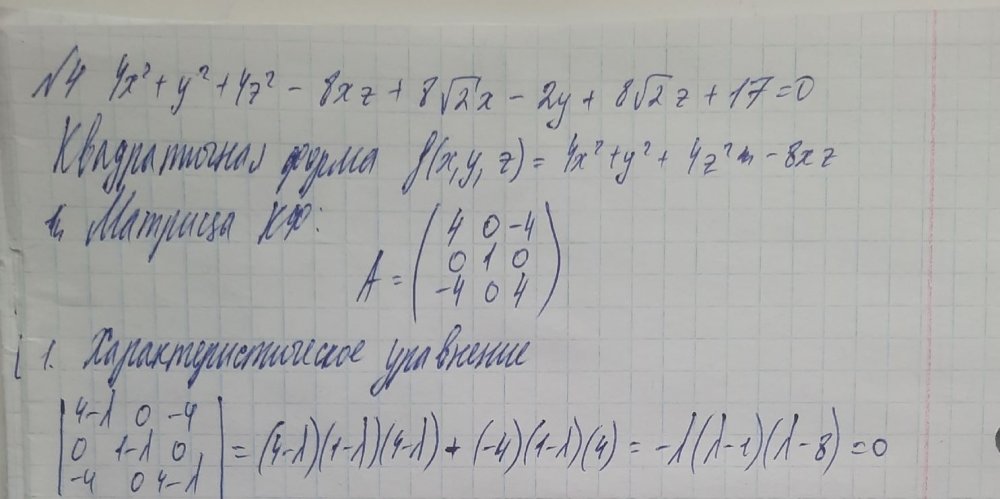 №4 4x² + y² + 4z² - 8xz + 8√2x - 2y + 8√2z + 17 = 0
Квадратичная форма f(x, y, z) = 4x² + y² + 4z² - 8xz
Матрицы КФ:
A = ( 4 0 -4
0 1 0
-4 0 4 )
1. Характеристическое уравнение
| 4-λ 0 -4
0 1-λ 0
-4 0 4-λ | = (4-λ)(1-λ)(4-λ) + (-4)(1-λ)(4) = -λ(λ-1)(λ-8) = 0